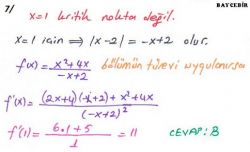 BAYCEBİR
7/
x=1 kritik nokta değil.
x=1 için ⟹ |x-2| = -x+2 olur.
f(x) = x²+4x / -x+2 bölümün türevi uygulanırsa
f'(x) = (2x+4)(-x+2) + x²+4x / (-x+2)²
f'(1) = 6.1+5 / 1 = 11 CEVAP: B